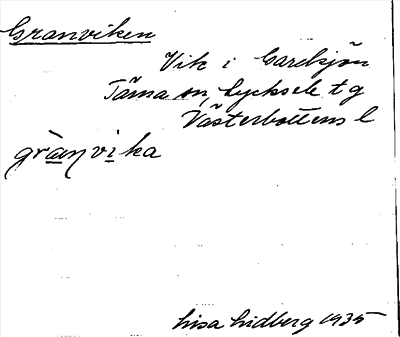 Granviken
Vik i Careksjön
Tärna sn, Lycksele t g
Västerbottens l
gràn̥vika
Lisa Lidberg 1935